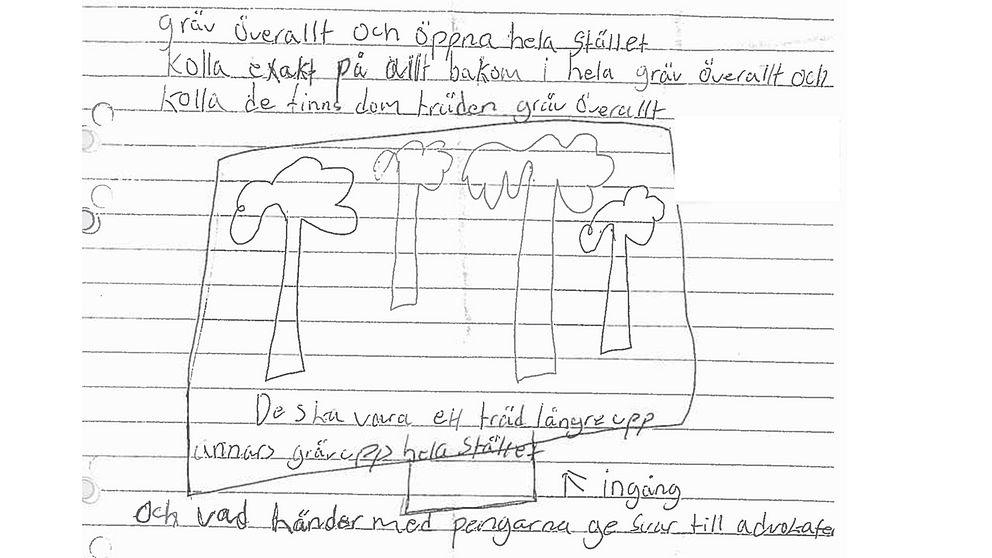 gräv överallt och öppna hela stället
kolla exakt på allt bakom i hela gräv överallt och
kolla de finns dom träden gräv överallt
De ska vara ett träd längre upp
annars gräv upp hela stället
ingång
och vad händer med pengarna ge svar till advokaten